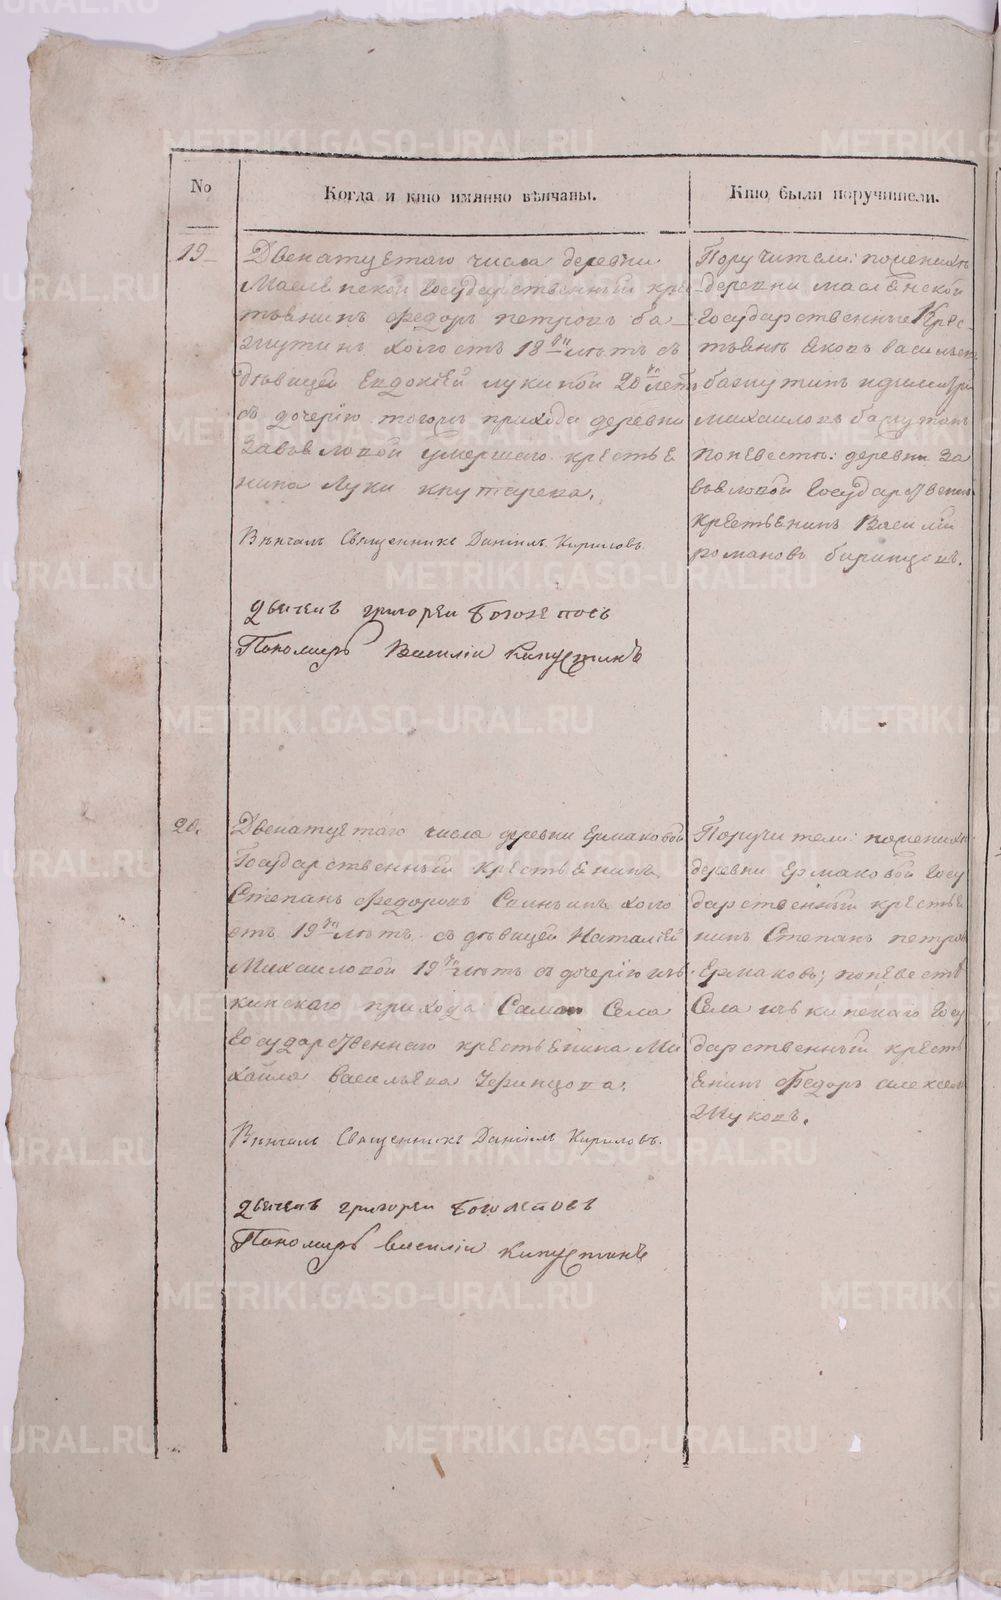 №
Когда и кто имянно вѣнчаны.
Кто были поручители.
19
Двенатцетаго числа деревни
Масленской Государственный кре
тьянинъ Федоръ петровъ ба
гмутинъ холостъ 18ти лѣтъ съ
дѣвицей Евдокіей лукиной 20ти лѣтъ
съ дочерію тогожъ прихода деревни
Завьяловой умершаго крестье
нина Луки
Вѣнчалъ Священникъ Даніилъ Кириловъ.
Дьячекъ григореи Боголеповъ
Пономарь Василіи Капустинъ
Поручители: поженихѣ
деревни масленской
Государственные Крес
тьяне Яковъ васильевъ
багмутинъ
михаиловъ багмутовъ
поневестѣ: деревни За
вьяловой Государственн
крестьенинъ Василіи
романовъ
20.
Двенатцетаго числа деревни Ермаковой
Государственный крестьенинъ
Степанъ Федоровъ холо
стъ 19ти лѣтъ, съ дѣвицей Наталіей
Михаиловой 19ти лѣтъ съ дочерію
кинскаго прихода Самаго Села
Государственнаго крестьенина Ми
хаила васильева
Вѣнчалъ Священникъ Даніилъ Кириловъ.
Дьячекъ григореи Боголеповъ
Пономарь василіи капустинъ
Поручители: поженихѣ
деревни Ермаковой Госу
дарственный крестье
нинъ Степанъ петровъ
Ермаковъ; поневестѣ
Села Госу
дарственный кресть
енинъ Федоръ алексеевъ
Жуковъ.